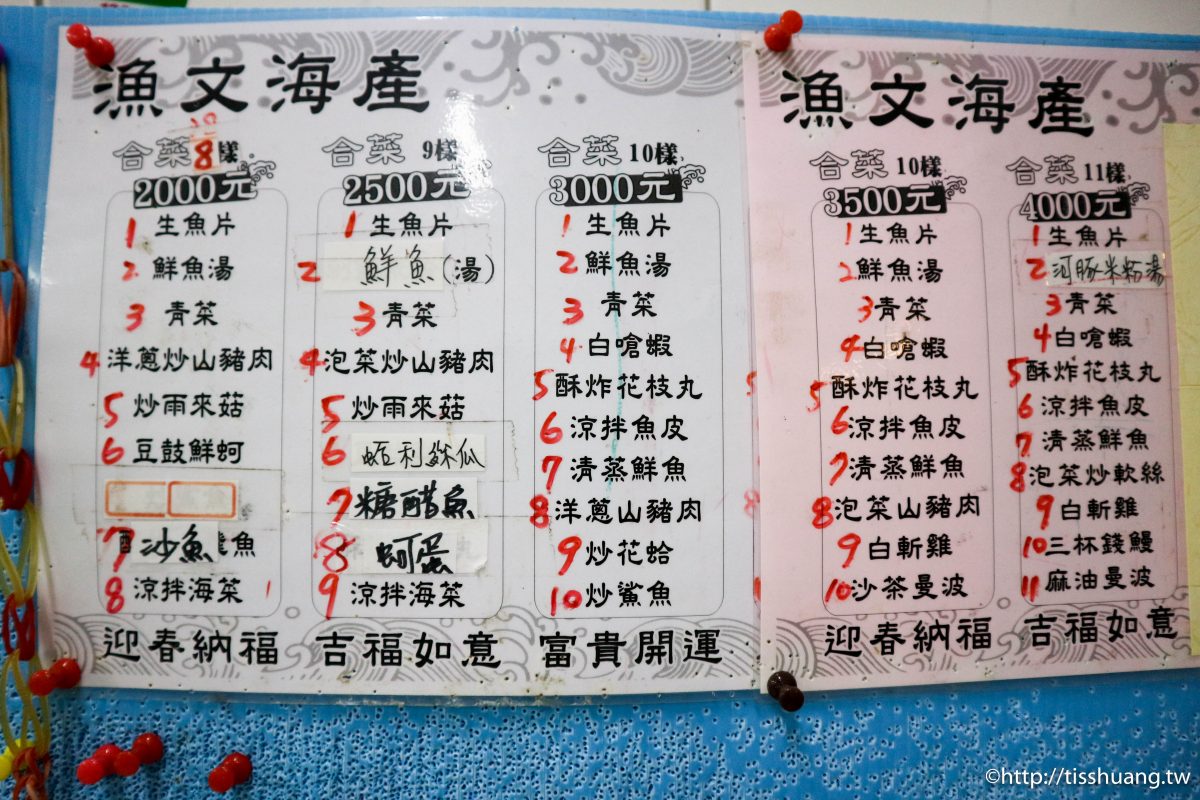 漁文海產
合菜 8樣
2000元
1 生魚片
2 鮮魚湯
3 青菜
4 洋蔥炒山豬肉
5 炒雨來菇
6 豆鼓鮮蚵
7 沙魚 魚
8 涼拌海菜
迎春納福
合菜 9樣
2500元
1 生魚片
2 鮮魚(湯)
3 青菜
4 泡菜炒山豬肉
5 炒雨來菇
6 蛤利絲瓜
7 糖醋魚
8 蚵蛋
9 涼拌海菜
吉福如意
合菜 10樣
3000元
1 生魚片
2 鮮魚湯
3 青菜
4 白嗆蝦
5 酥炸花枝丸
6 涼拌魚皮
7 清蒸鮮魚
8 洋蔥山豬肉
9 炒花蛤
10 炒鯊魚
富貴開運
漁文海產
合菜 10樣
3500元
1 生魚片
2 鮮魚湯
3 青菜
4 白嗆蝦
5 酥炸花枝丸
6 涼拌魚皮
7 清蒸鮮魚
8 泡菜山豬肉
9 白斬雞
10 沙茶曼波
迎春納福
合菜 11樣
4000元
1 生魚片
2 河豚米粉湯
3 青菜
4 白嗆蝦
5 酥炸花枝丸
6 涼拌魚皮
7 清蒸鮮魚
8 泡菜炒軟絲
9 白斬雞
10 三杯錢鰻
11 麻油曼波
吉福如意
©http://tisshuang.tw